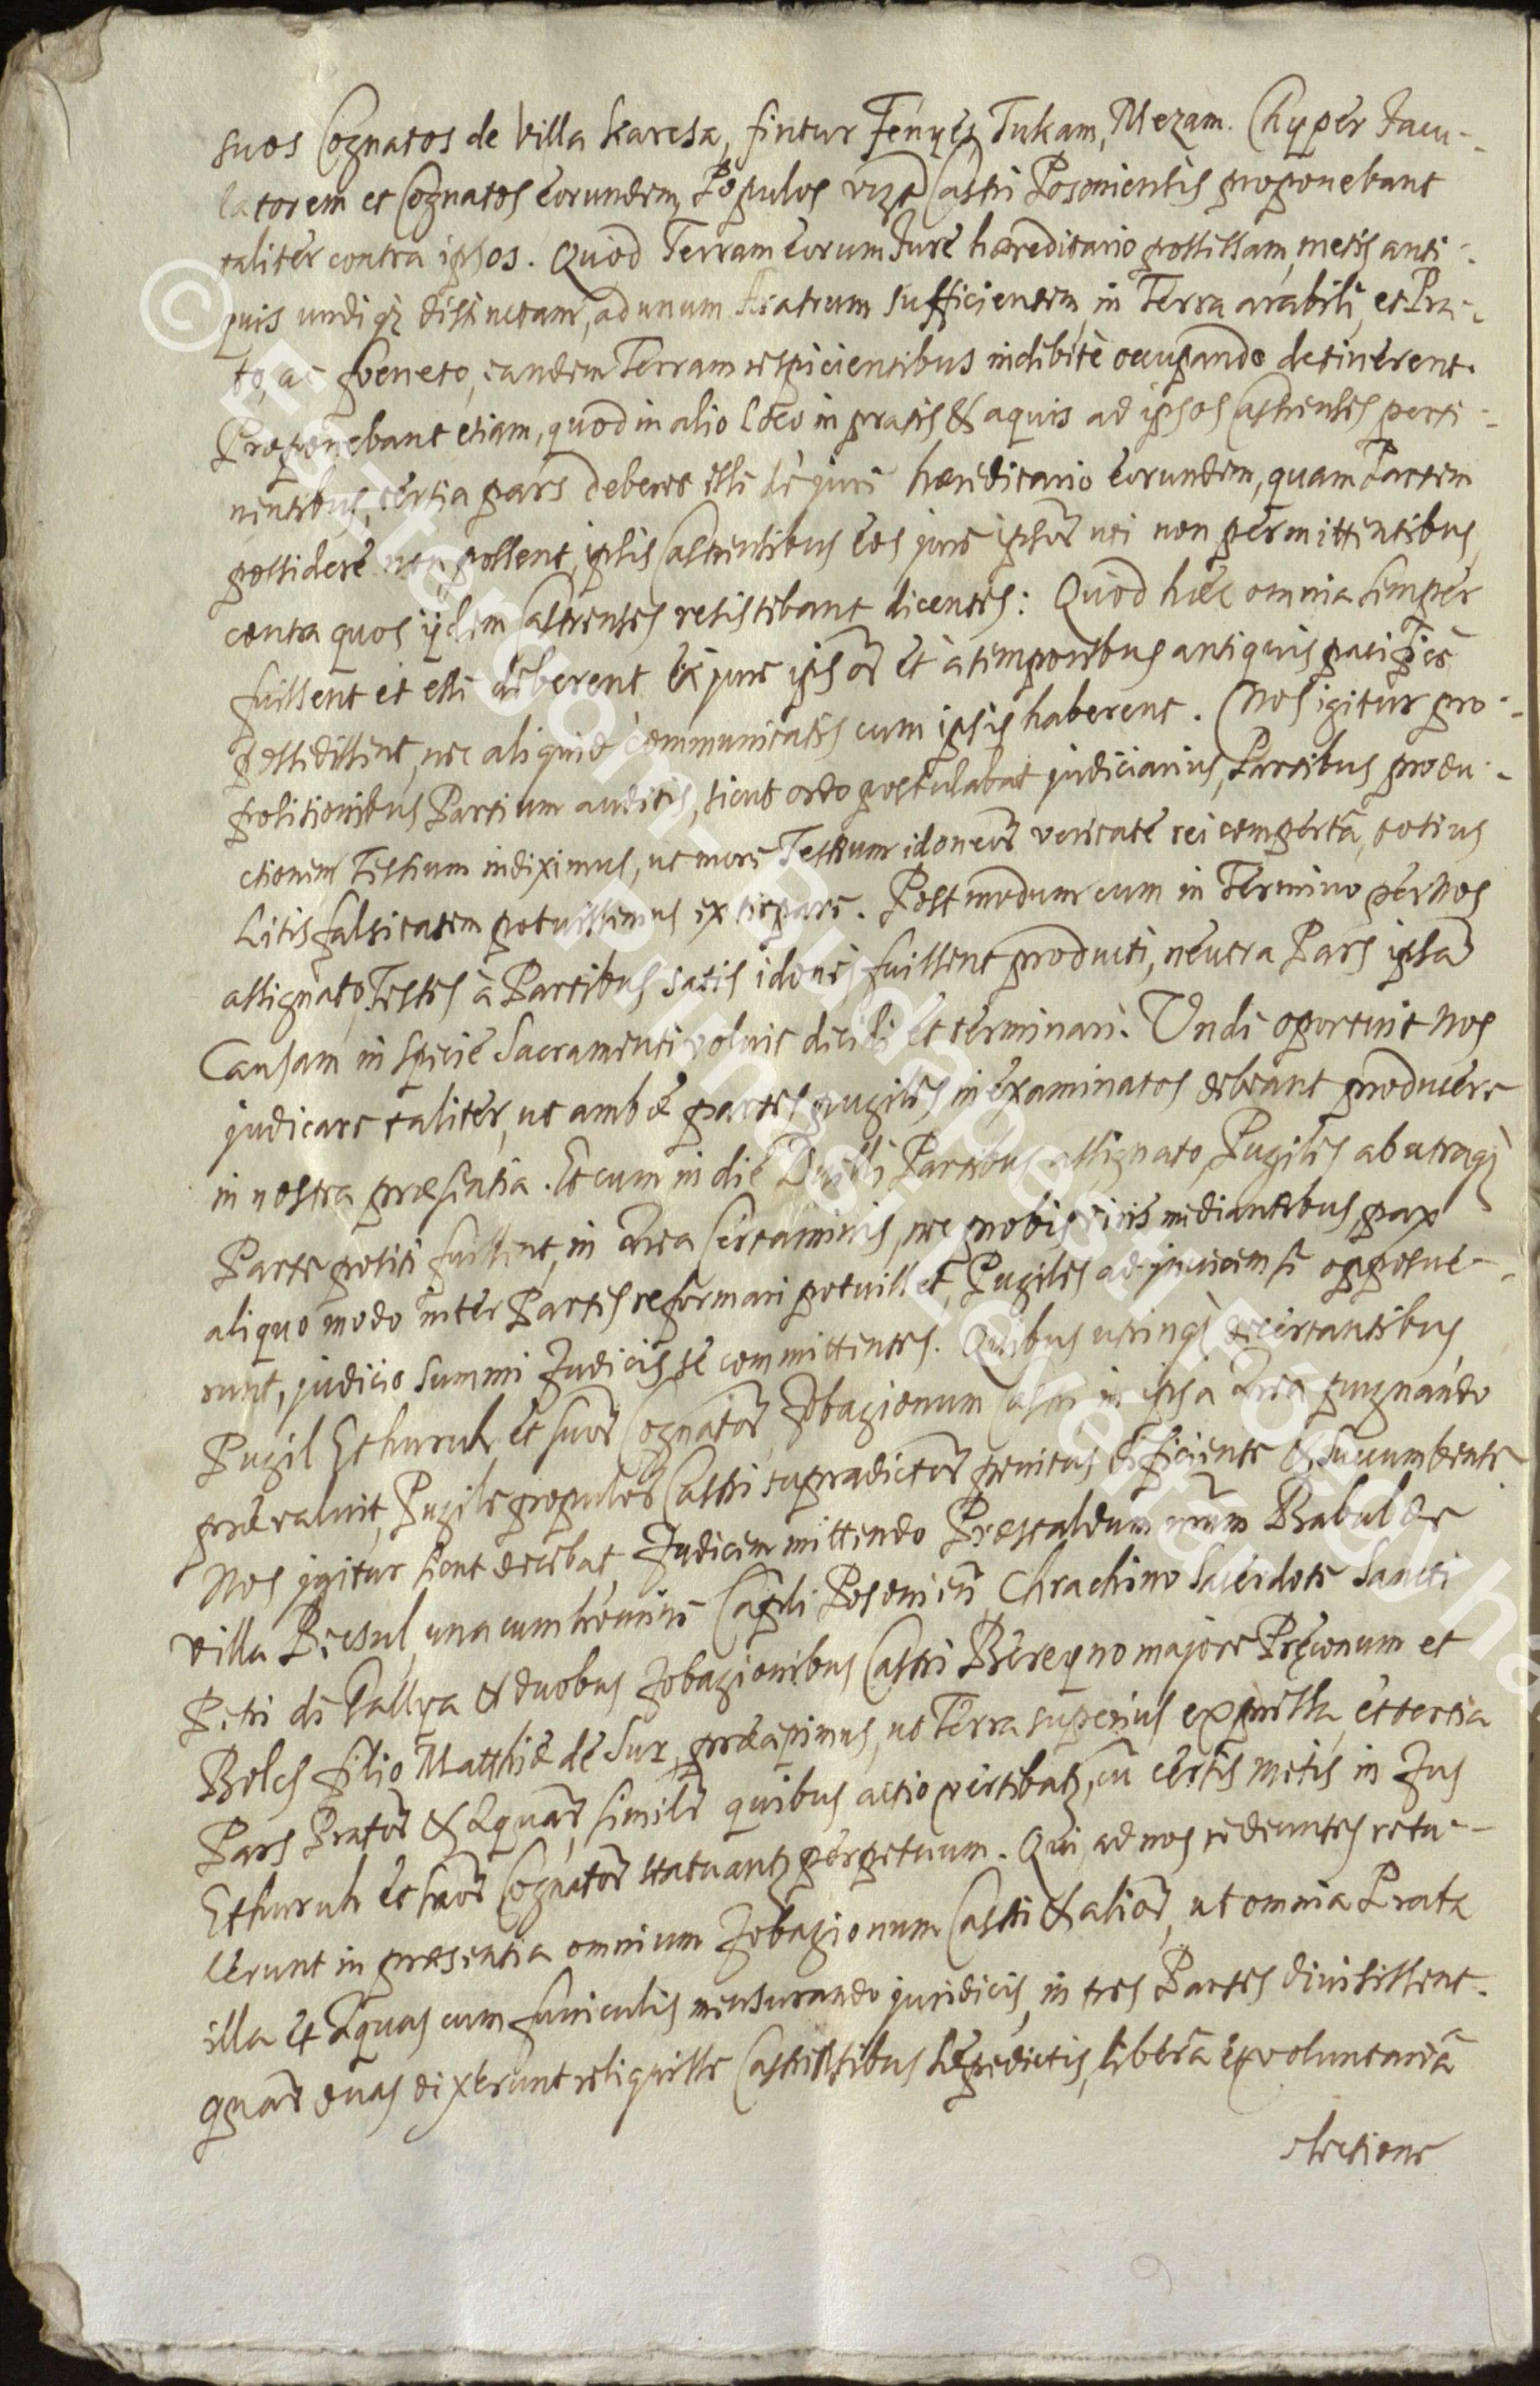 suos Cognatos de Villa Karcsa, sintur Fenyes, Tukam, Mezam. Chyper Jacu-
latorem et Cognatos eorundem, Populos vizt Castri Posoniensis proponebant
taliter contra ipsos. Quod Terram eorum Jure hæreditario possessam, metis anti-
quis undiq; distinctam, ad unum Aratrum sufficientem in Terra arabili, et Pra-
to, ac foeneto, eandem Terram respicientibus indebitè occupando detinerent.
Proponebant etiam, quod in alio Loco in pratis & aquis ad ipsos Castrenses perti-
nentibus, tertia pars deberet esse de jure hæreditario eorundem, quam Partem
possidere non possent, ipsis Castrensibus eos jure ipsor uti non permittentibus,
contra quos ijdem Castrenses resistebant dicentes: Quod hæc omnia semper
fuissent et esse deberent de jure ipsor et à temporibus antiquis pacificè
possedissent, nec aliquid communitatis cum ipsis haberent. Nos igitur pro-
positionibus Partium auditis, sicut ordo postulabat judiciarius, Partibus produ-
ctionem Testium indiximus, ut more Testium idoneor veritate rei compertâ, totius
Litis falsitatem potuissemus extirpare. Postmodum cum in Termino per Nos
assignato, Testes à Partibus satis idonei fuissent producti, neutra Pars ipsam
Causam in specie Sacramenti voluit decidi et terminari. Unde oportuit Nos
judicare taliter, ut ambæ partes pugiles inexaminatos debeant producere
in nostra præsentia. Et cum in die Duelli Partibus assignato, Pugiles ab utraq;
Parte positi fuissent, in Area Certaminis, nec probis viris mediantibus, pax
aliquo modo inter Partes reformari potuisset, Pugiles ad invicem se opposue-
runt, judicio summi Judicis se committentes. Quibus utrinq; decertantibus,
Pugil Ethuruh et suor Cognator Jobagionum Castri in ipsa Area pugnando
prævaluit, Pugile populor Castri supradictor penitus deficiente & succumbente.
Nos igitur sicut decebat Judicem mittendo Præstaldum nrum Babul de
villa Bresul, una cum homine Capli Posonien Chrachino Sacerdote Sancti
Petri de Pallya & duobus Jobagionibus Castri Bereqno majore Præconum et
Boles filio Matthiæ de Sur, præcepimus, ut Terra superius expressa, et tertia
Pars Prator & Aquar, similr quibus actio vertebatr, cū certis metis in Jus
Ethuruh et suor Cognator statuantr perpetuum. Qui ad nos redeuntes retu-
lerunt in præsentia omnium Jobagionum Castri & alior, ut omnia Prata
illa et Aquas cum funiculis mensurando juridicis, in tres Partes divisissent.
quar duas dixerunt reliquisse Castrensibus sæpedictis, liberâ et voluntariâ
electione